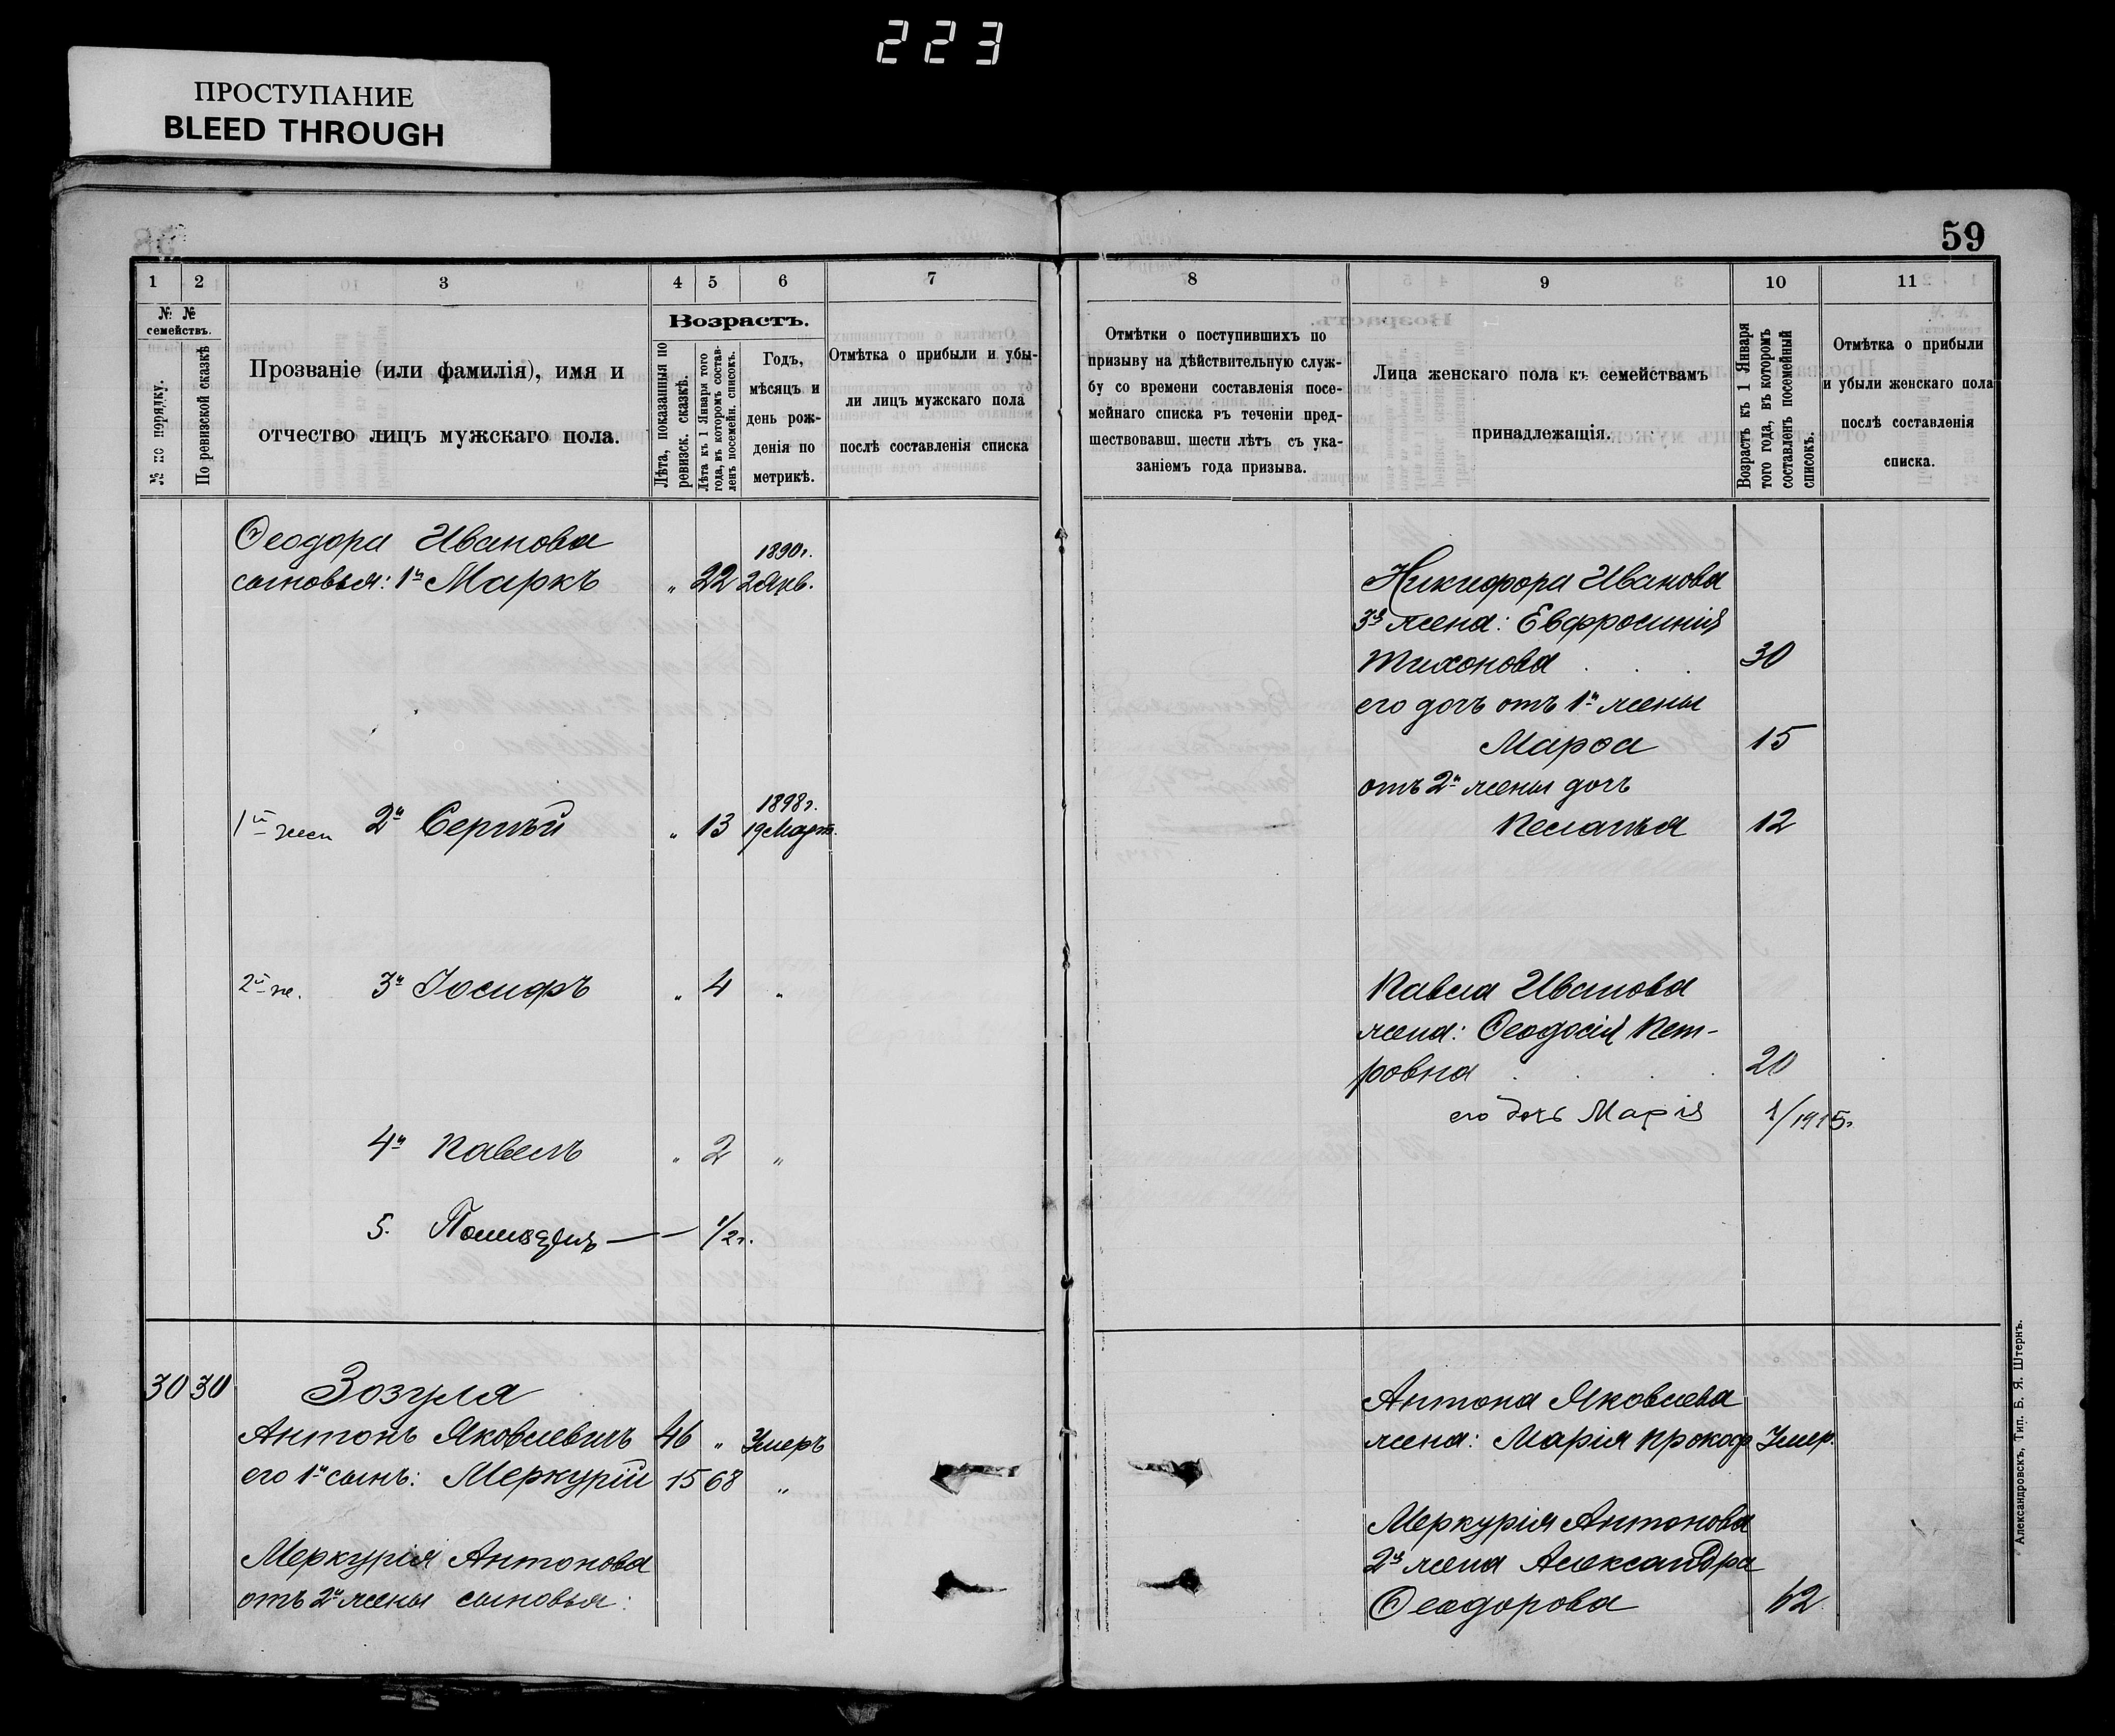 223
ПРОСТУПАНИЕ
BLEED THROUGH
59
1 2 3 4 5 6 7
№ № семействъ.
№ по порядку.
По ревизской сказкѣ
Прозваніе (или фамилія), имя и
отчество лицъ мужскаго пола.
Возрастъ.
Лѣта, показанныя по
ревизск. сказкѣ.
Лѣта къ 1 Января того
года, въ которомъ состав-
ленъ посемейн. списокъ.
Годъ,
мѣсяцъ и
день рож-
денія по
метрикѣ.
Отмѣтка о прибыли и убы-
ли лицъ мужскаго пола
послѣ составленія списка
Ѳеодора Иванова
1890г.
сыновья: 1й Маркъ „ 22 2 Янв.
1898г.
1й жен 2й Сергѣй „ 13 19 Март.
2й же. 3й Іосифъ „ 4 „
4й Павелъ „ 2 „
5. 1/2г.
30 30 Зозуля
Антонъ Яковлевичъ 46 „ Умеръ
его 1й сынъ: Меркурій 15 68 „
Меркурія Антонова
отъ 2й жены сыновья:
8 9 10 11
Отмѣтки о поступившихъ по
призыву на дѣйствительную служ-
бу со времени составленія посе-
мейнаго списка въ теченіи пред-
шествовавш. шести лѣтъ съ ука-
заніемъ года призыва.
Лица женскаго пола къ семействамъ
принадлежащія.
Возрастъ къ 1 Января
того года, въ которомъ
составленъ посемейный
списокъ.
Отмѣтка о прибыли
и убыли женскаго пола
послѣ составленія
списка.
Никифора Иванова
3я жена: Евфросинія
Тихонова 30
его дочь отъ 1й жены
Марѳа 15
отъ 2й жены дочь
Пелагѣя 12
Павла Иванова
жена: Ѳеодосія Пет-
ровна 20
его дочь Марія 1/1915г.
Антона Яковлева
жена: Марія Прокоф. Умер.
Меркурія Антонова
2я жена Александра
Ѳеодорова 62
Александровскъ, Тип. Б. Я. Штернъ.